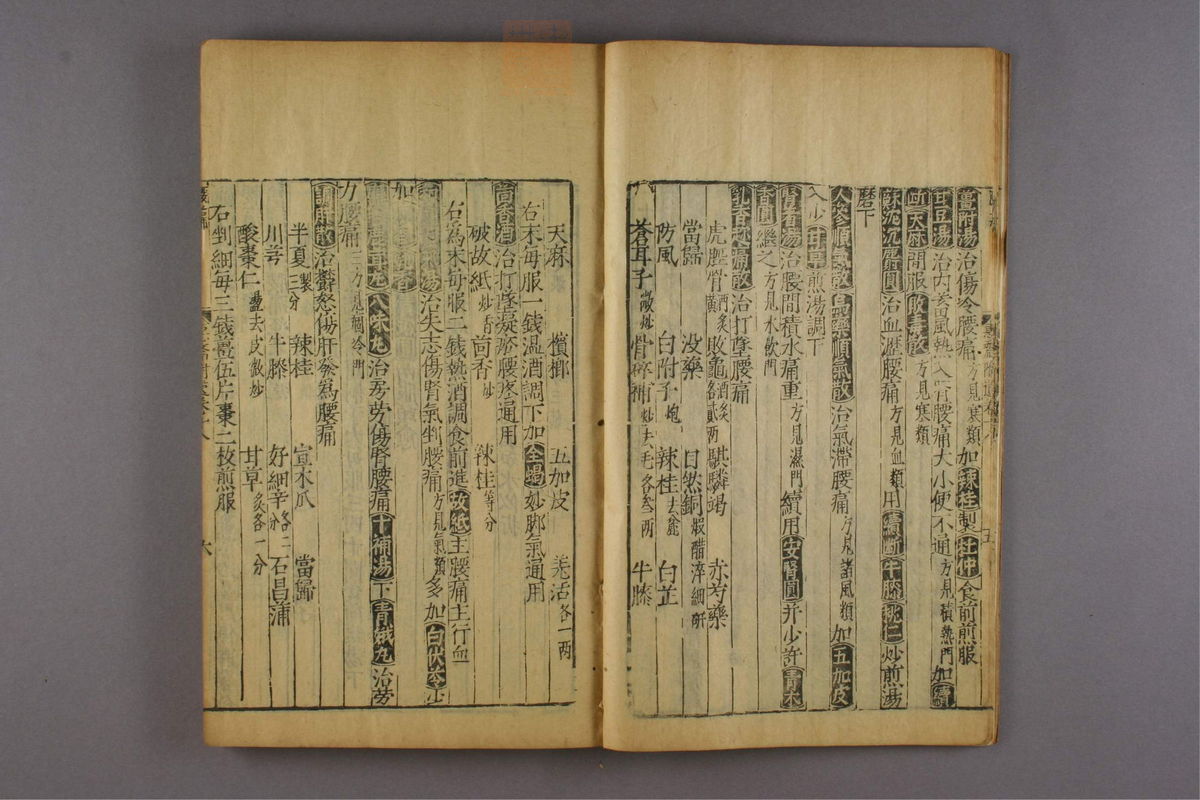 薑附湯治傷冷腰痛方見寒類加辣桂製杜仲食前煎服
甘豆湯治內蓄風熱入腎腰痛大小便不通方見積熱門加續
斷天麻間服敗毒散方見寒類
蘇沉沉麝圓治血瀝腰痛方見血類用續斷牛膝桃仁炒煎湯
磨下
人參順氣散烏藥順氣散治氣滯腰痛方見諸風類加五加皮
入少甘草煎湯調下
腎著湯治腰間積水痛重方見濕門續用安腎圓并少許青木
香圓繼之方見水飲門
乳香趁痛散治打墜腰痛
虎脛骨酒炙黃敗龜酒炙各貳兩騏驎竭 赤芍藥
當歸 没藥 自然銅煅醋淬細研
防風 白附子炮 辣桂去麄 白芷
蒼耳子微炒骨碎補炒去毛各叁兩 牛膝
天麻 檳榔 五加皮 羌活各一兩
右末每服一錢温酒調下加全蝎妙脚氣通用
茴香酒治打墜凝瘀腰疼通用
破故紙炒香茴香炒 辣桂等分
右為末每服二錢熱酒調食前進故紙主腰痛主行血
湯治失志傷腎氣刺腰痛方見氣類多加白伏苓少
加
八味丸治房勞傷腎腰痛十補湯下青娥丸治勞
力腰痛三方見痼冷門
調肝散治鬱怒傷肝發為腰痛
半夏製三分辣桂 宣木瓜 當歸
川芎 牛膝 好細辛各二分石昌蒲
酸棗仁盪去皮微炒 甘草炙各一分
右剉細每三錢薑伍片棗二枚煎服